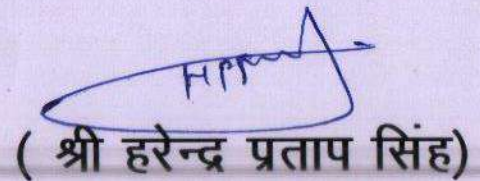 ( श्री हरेन्द्र प्रताप सिंह)